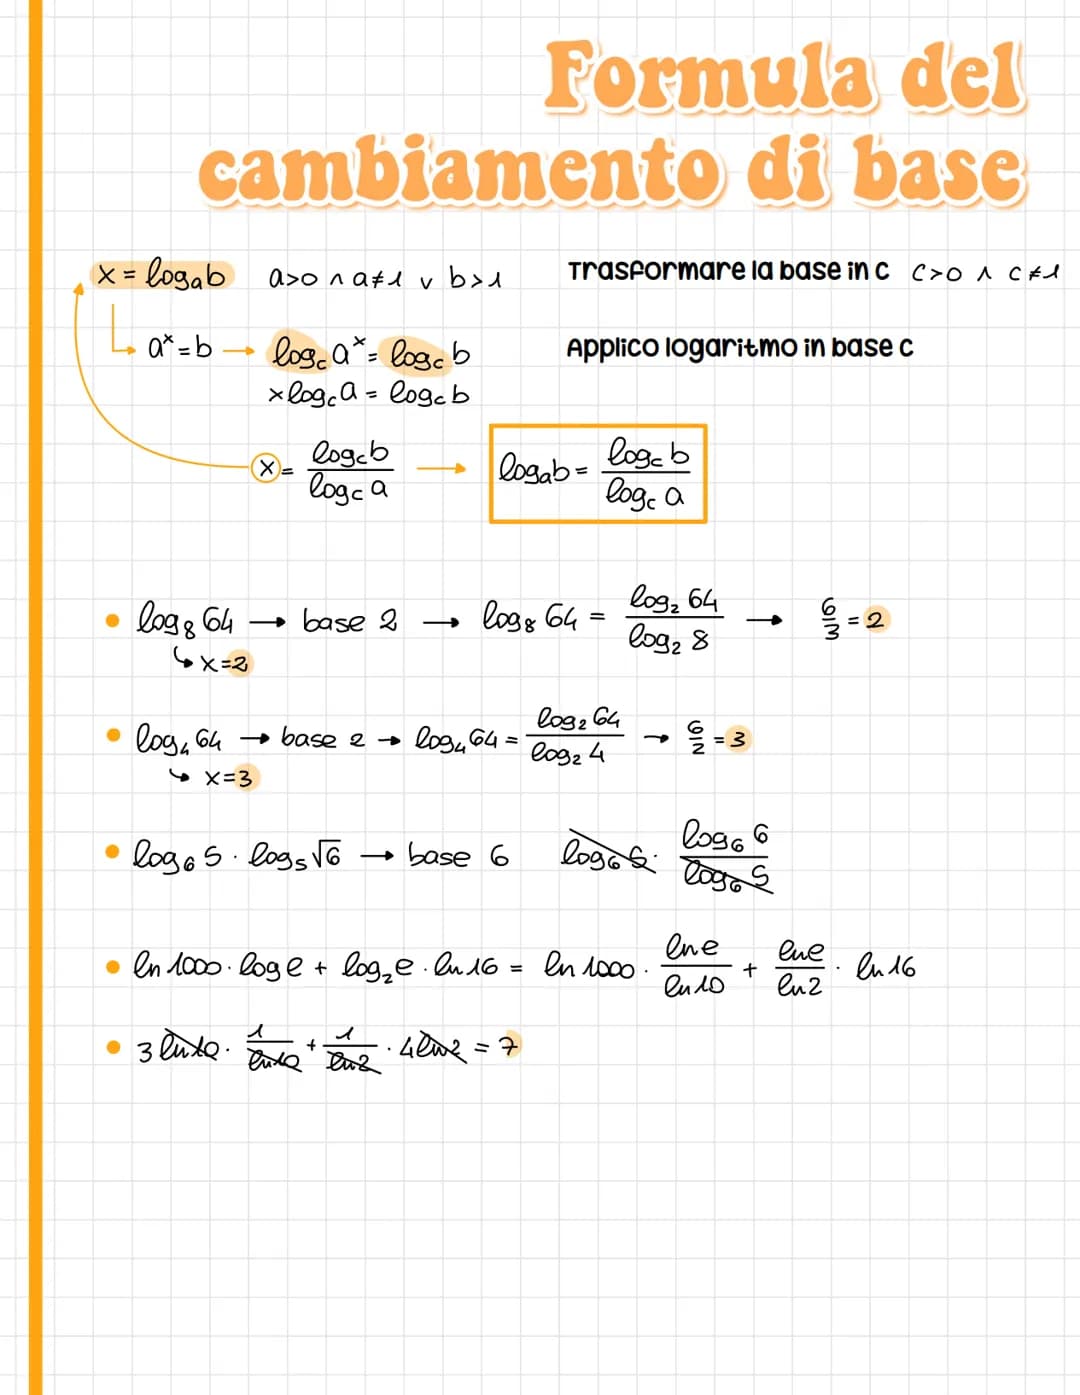 Formula del
cambiamento di base
x = logₐb a>0 ∧ a≠1 ∨ b>1 Trasformare la base in c c>0 ∧ c≠1
aˣ = b → log_c aˣ = log_c b Applico logaritmo in base c
x log_c a = log_c b
x = log_c b / log_c a → logₐb = log_c b / log_c a
• log₈ 64 → base 2 → log₈ 64 = log₂ 64 / log₂ 8 → 6/3 = 2
↳ x=2
• log₄ 64 → base 2 → log₄ 64 = log₂ 64 / log₂ 4 → 6/2 = 3
↳ x=3
• log₆ 5 · log₅ √6 → base 6 log₆ 5 · log₆ 6 / log₆ 5
• ln 1000 · log e + log₂ e · ln 16 = ln 1000 · ln e / ln 10 + ln e / ln 2 · ln 16
• 3 ln 10 · 1 / ln 10 + 1 / ln 2 · 4 ln 2 = 7